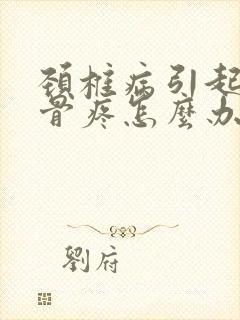 颈椎病引起
骨疼怎麼办
劉府